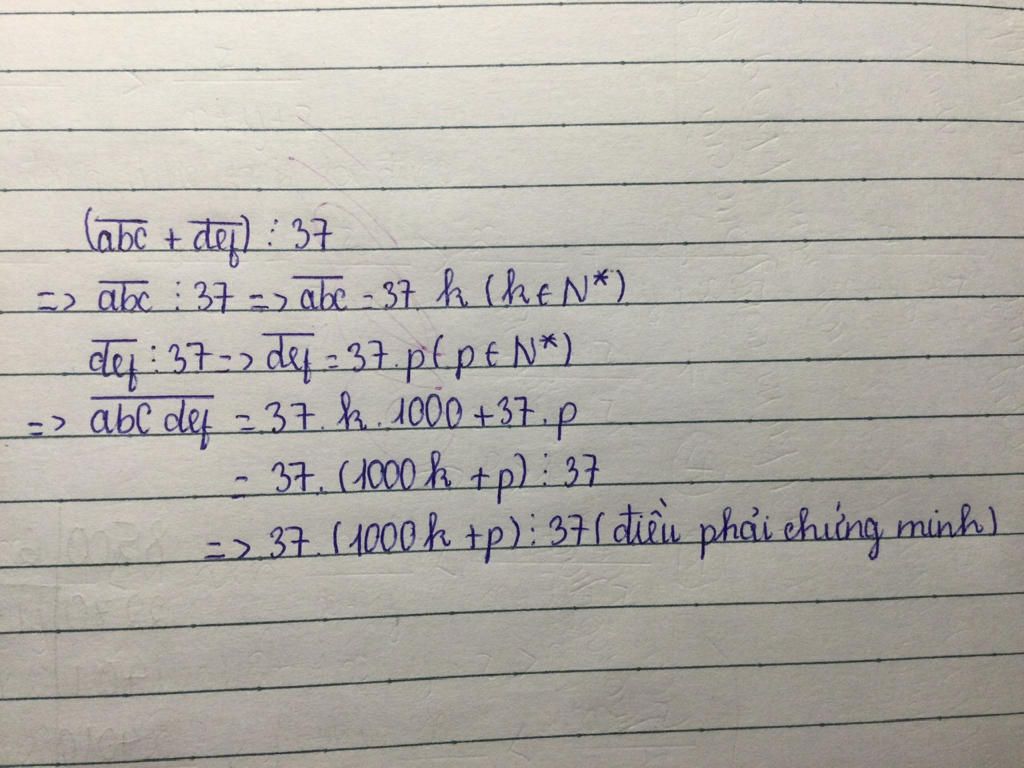 (abc + def) ⋮ 37
=> abc ⋮ 37 => abc = 37 k (k ∈ N*)
def ⋮ 37 => def = 37.p (p ∈ N*)
=> abc def = 37. k. 1000 + 37. p
= 37. (1000k + p) ⋮ 37
=> 37. (1000k + p) ⋮ 37 (điều phải chứng minh)